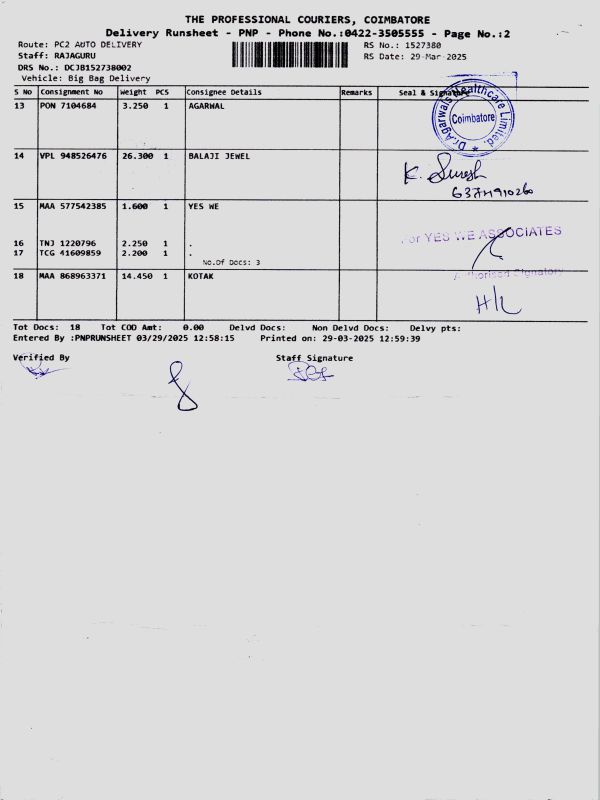 THE PROFESSIONAL COURIERS, COIMBATORE
Delivery Runsheet - PNP - Phone No.:0422-3505555 - Page No.:2
Route: PC2 AUTO DELIVERY RS No.: 1527380
Staff: RAJAGURU RS Date: 29-Mar-2025
DRS No.: DCJB152738002
Vehicle: Big Bag Delivery
S No Consignment No Weight PCS Consignee Details Remarks Seal & Signature
13 PON 7104684 3.250 1 AGARWAL
Dr.Agarwals Healthcare Limited. *
Coimbatore
14 VPL 948526476 26.300 1 BALAJI JEWEL
K. Suresh
6374910260
15 MAA 577542385 1.600 1 YES WE
For YES WE ASSOCIATES
16 TNJ 1220796 2.250 1 .
17 TCG 41609859 2.200 1 .
No.Of Docs: 3
Authorised Signatory
18 MAA 868963371 14.450 1 KOTAK
Tot Docs: 18 Tot COD Amt: 0.00 Delvd Docs: Non Delvd Docs: Delvy pts:
Entered By :PNPRUNSHEET 03/29/2025 12:58:15 Printed on: 29-03-2025 12:59:39
Verified By Staff Signature